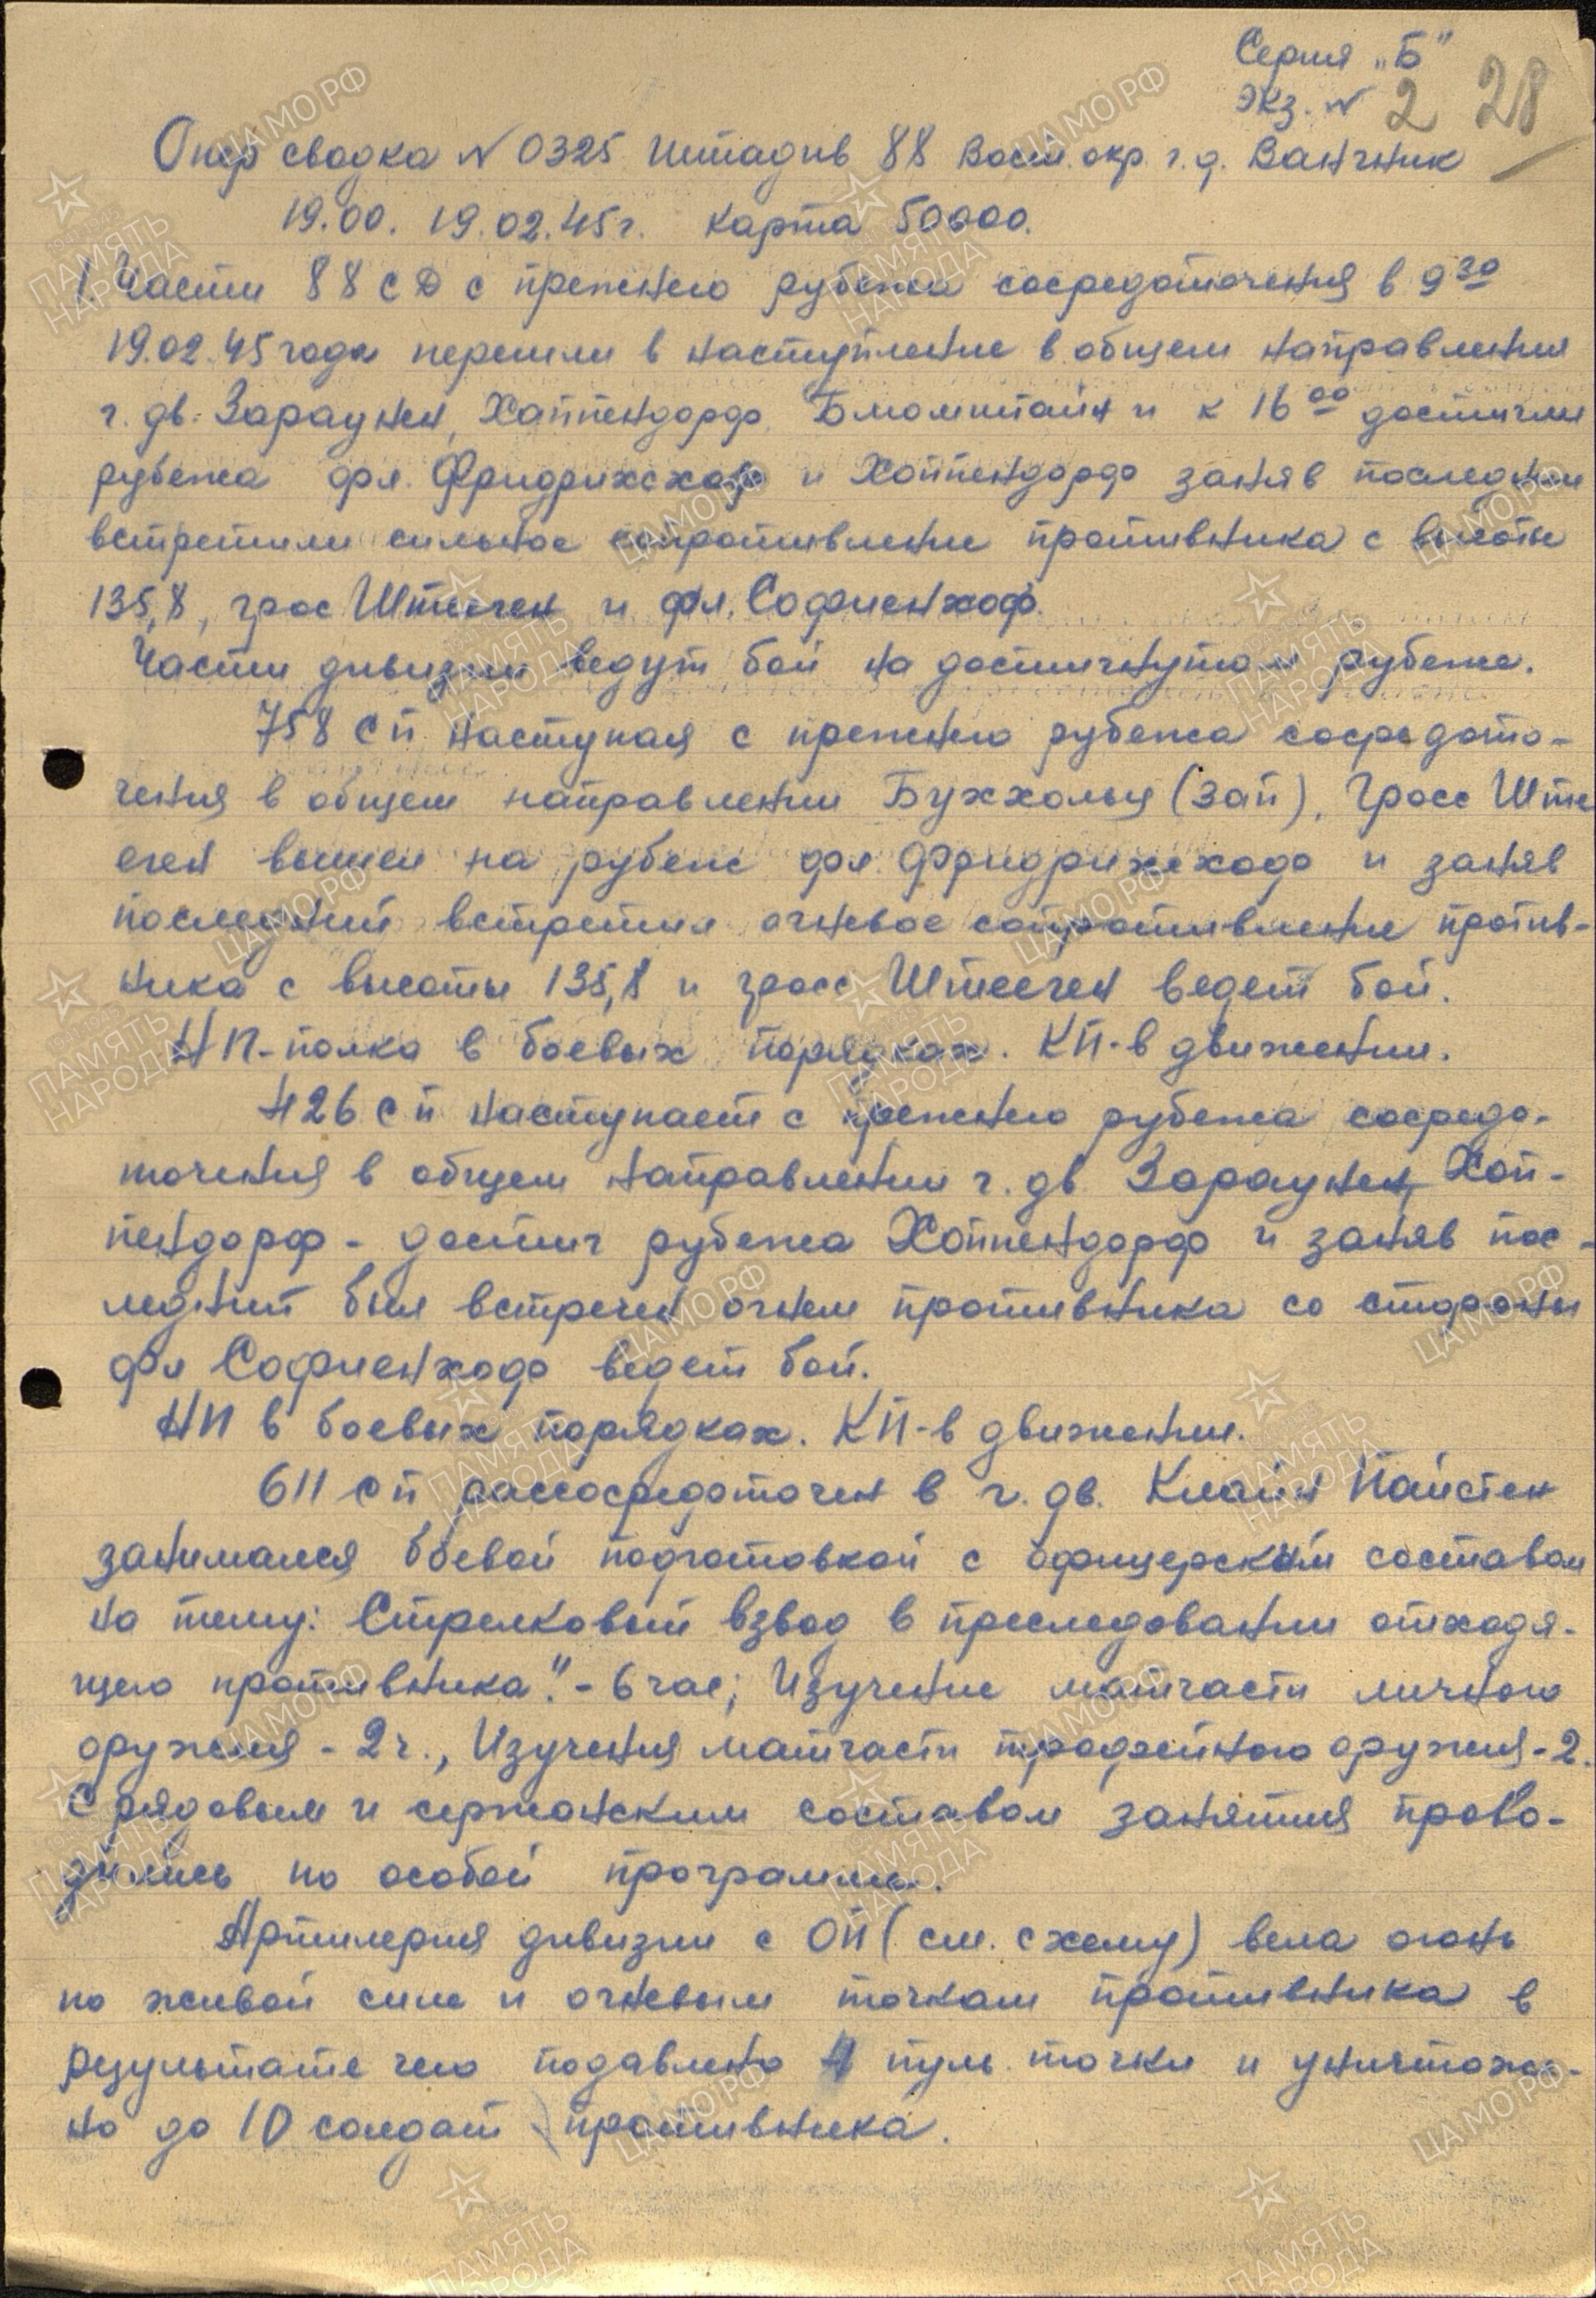 Серия „Б"
Экз. № 2 28
Опер сводка № 0325 Штадив 88 Вост. окр. г. д. Ванчник
19.00. 19.02.45 г. Карта 50000.
1. Части 88 СД с прежнего рубежа сосредоточения в 9 30
19.02.45 года перешли в наступление в общем направлении
г. дв. Зараунен, Хаппендорф, Бломштайн и к 16 00 достигли
рубежа фл. Фридрихсхоф и Хоппендорф заняв последние
встретили сильное сопротивление противника с высоты
135,8, грос Штееген и фл. Софиенхоф.
Части дивизии ведут бой на достигнутом рубеже.
758 СП наступая с прежнего рубежа сосредото-
чения в общем направлении Буххольц (Зап), Гросс Ште
еген вышел на рубеж фл. Фридрихсхоф и заняв
последний встретил огневое сопротивление против-
ника с высоты 135,8 и гросс Штееген ведет бой.
НП-полка в боевых порядках. КП-в движении.
426 СП наступает с прежнего рубежа сосредо-
точения в общем направлении г. дв Зараунен, Хоп-
пендорф - достиг рубежа Хоппендорф и заняв пос-
ледний был встречен огнем противника со стороны
фл Софиенхоф ведет бой.
НП в боевых порядках. КП-в движении.
611 СП рассосредоточен в г. дв. Клайн Пайстен
занимался боевой подготовкой с офицерским составом
на тему: Стрелковый взвод в преследовании отходя-
щего противника." - 6 час; Изучение матчасти личного
оружия - 2 ч., Изучения матчасти трофейного оружия - 2.
С рядовым и сержанским составом занятия прово-
дились по особой программе.
Артилерия дивизии с ОП (см. схему) вела огонь
по живой силе и огневым точкам противника в
результате чего подавлено 4 пуль. точки и уничтоже-
но до 10 солдат противника.
ЦАМО РФ
ПАМЯТЬ
НАРОДА